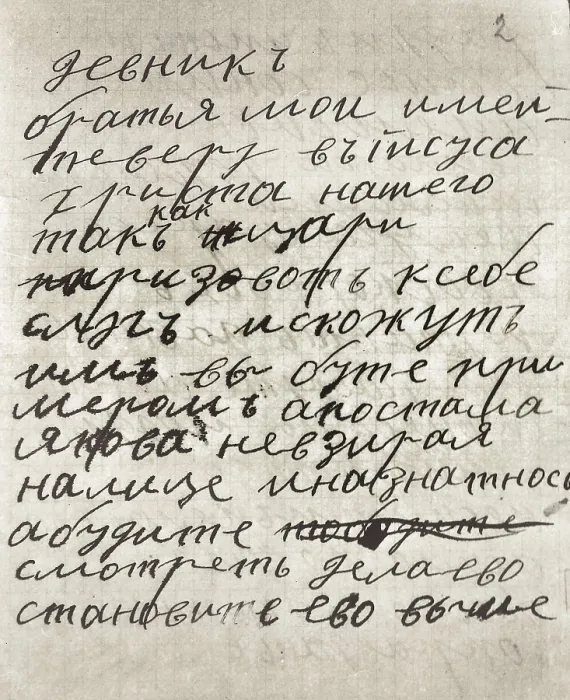 2
девникъ
братья мои имей-
те веру въ іисуса
Христа нашего
такъ как цари
призовотъ ксебе
слугъ искожутъ
имъ вы буте при
меромъ апостала
якова невзирая
налице инаȥнатнось
абудите
смотреть делаево
становите ево выше